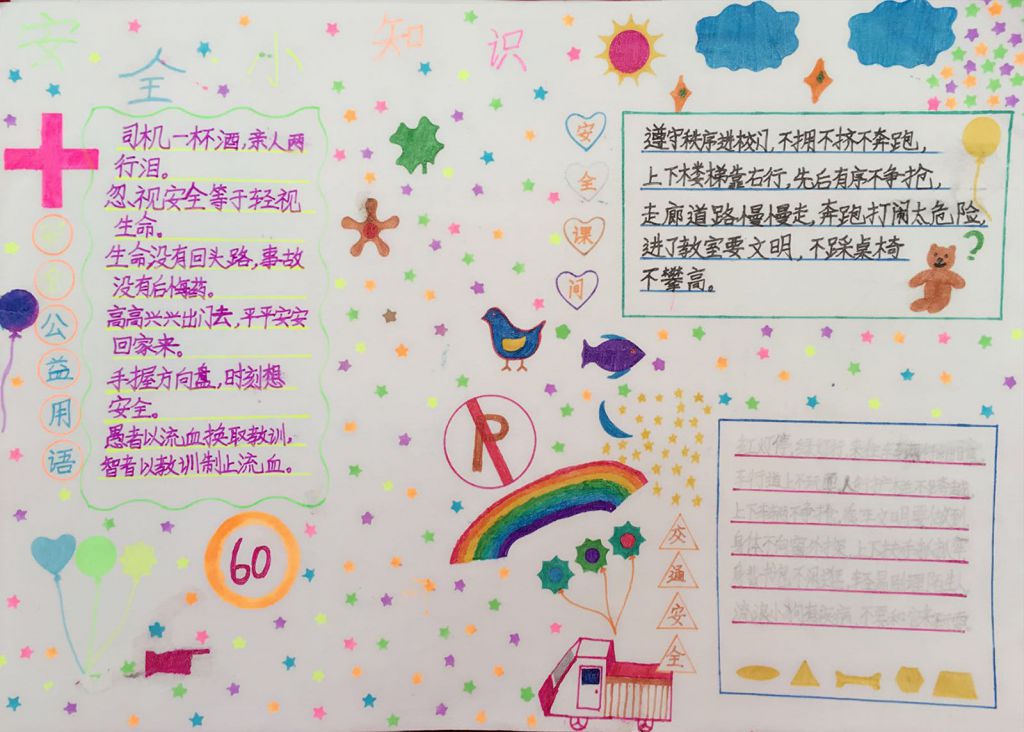 安全小知识
公益用语
司机一杯酒,亲人两
行泪。
忽视安全等于轻视
生命。
生命没有回头路,事故
没有后悔药。
高高兴兴出门去,平平安安
回家来。
手握方向盘,时刻想
安全。
愚者以流血换取教训,
智者以教训制止流血。
60
安全课间
遵守秩序进校门,不拥不挤不奔跑,
上下楼梯靠右行,先后有序不争抢,
走廊道路慢慢走,奔跑打闹太危险,
进了教室要文明,不踩桌椅
不攀高。
?
P
交通安全
红灯停,绿灯行
流浪小狗有疾病,不要和它